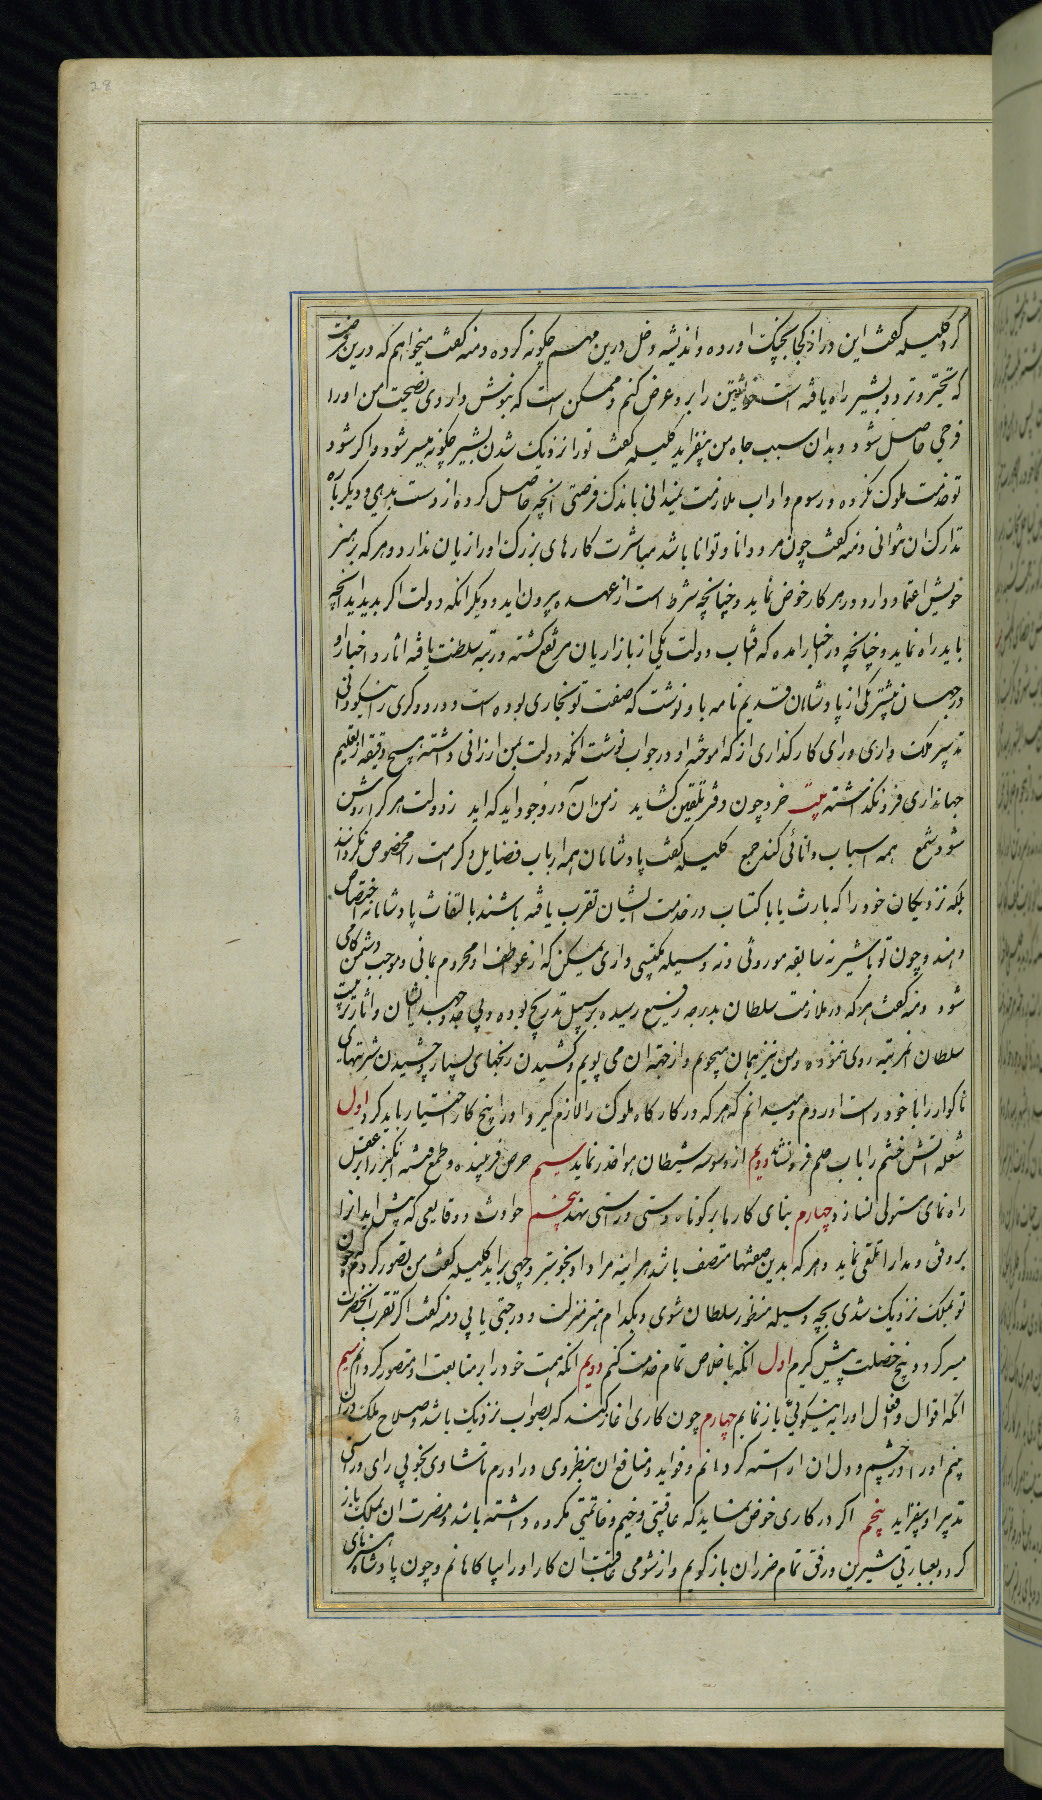 28
کرد کلیله کفت این در از کجا بچنک اورده و اندیشه دخل درین مهم چکونه کرده دمنه کفت میخواهم که درین فرصت
که تحیّر و تردد بشیر راه یافته است خویشتن را برو عرض کنم و ممکن است که بنوش داروی نصیحت من او را
فرحی حاصل شود و بدان سبب جاه من بیفزاید کلیله کفت ترا نزدیک شدن بشیر چکونه میسر شود و اکر شود
تو خدمت ملوک نکرده و رسوم و اداب ملازمت نمیدانی باندک فرصتی انچه حاصل کرده از دست بدهی و دیکرباره
تدارک ان نتوانی دمنه کفت چون مرد دانا و توانا باشد مباشرت کارهای بزرک او را زیان ندارد و هر که بر هنر
خویش اعتماد دارد در هر کار خوض نماید و چنانچه شرط است از عهده بیرون اید و دیکر انکه دولت اکر بدید اید انچه
باید راه نماید و چنانچه در اخبار امده که افتاب دولت یکی از بازاریان مرتفع کشته و رتبه سلطنت یافته اثار و اخبار او
در جهان منتشر یکی از پادشاهان قدیم نامه باو نوشت که صنعت تو نجاری بوده است و درودکری را نیکو دانی
تدبیر ملک داری و رای کارکذاری از که اموخته او در جواب نوشت انکه دولت بمن ارزانی داشته هیچ دقیقه از تعلیم
جهانداری فرو نکذاشته بیت خرد چون دفتر تلقین کشاید زمن آن در وجود اید که اید ز دولت هر کرا روشن
شود شمع همه اسباب دانائی کند جمع کلیله کفت پادشاهان همه ارباب فضایل و کرامت را مخصوص نکردانند
بلکه نزدیکان خود را که بارث یا باکتساب در خدمت ایشان تقرب یافته باشند بالتفات پادشاهانه اختصاص
دهند و چون تو با شیر نه سابقه موروثی و نه وسیله مکتسبی داری یمکن که از عواطف او محروم بمانی و موجب دشمن کامی
شود دمنه کفت هر که در ملازمت سلطان بدرجه رفیع رسیده بر سبیل تدریج بوده و بی جد و جهد ایشان و اثار تربیت
سلطان انمرتبه روی ننموده و من نیز همان میجویم و از جهة ان می پویم و کشیدن رنجهای بسیار و چشیدن شربتهای
ناکوار را با خود راست اورده ام و میدانم که هر که درکاه ملوک را لازم کیرد او را پنج کار اختیار باید کرد اول
شعله آتش خشم را باب حلم فرو نشاند دویم از وسوسه شیطان هوا حذر نماید سیم حرص فریبنده و طمع فتنه انکیز را بر عقل
راه نمای مستولی نسازد چهارم بنای کارها بر کوتاه دستی و راستی نهد پنجم حوادث و وقایعی که پیش اید انرا
برفق و مدارا تلقی نماید و هر که بدین صفتها متصف باشد هر اینه مراد او بخوبتر وجهی براید کلیله کفت من تصور کردم که چون
تو بملک نزدیک شدی بچه وسیله منظور سلطان شوی و بکدام هنر منزلت و درجتی یابی دمنه کفت اکر تقرب انحضرت
میسر کردد پنج خصلت پیش کیرم اول انکه باخلاص تمام خدمت کنم دویم انکه همت خود را بر متابعت او مقصور کردانم سیم
انکه اقوال و افعال او را به نیکوئی باز نمایم چهارم چون کاری اغاز کند که بصواب نزدیک باشد و صلاح ملک در ان
بینم او را در چشم و دل ان اراسته کردانم و فواید و منافع ان بنظر وی در اورم تا شادی بخوبی رای و راستی
تدبیر او بیفزاید پنجم اکر در کاری خوض نماید که عاقبتی وخیم و خاتمتی مکروه داشته باشد و مضرت ان بملک باز
کردد بعبارتی شیرین و رفق تمام ضرر ان باز کویم و از شومی عاقبت ان کار او را بیاکاهانم و چون پادشاه هنرهای